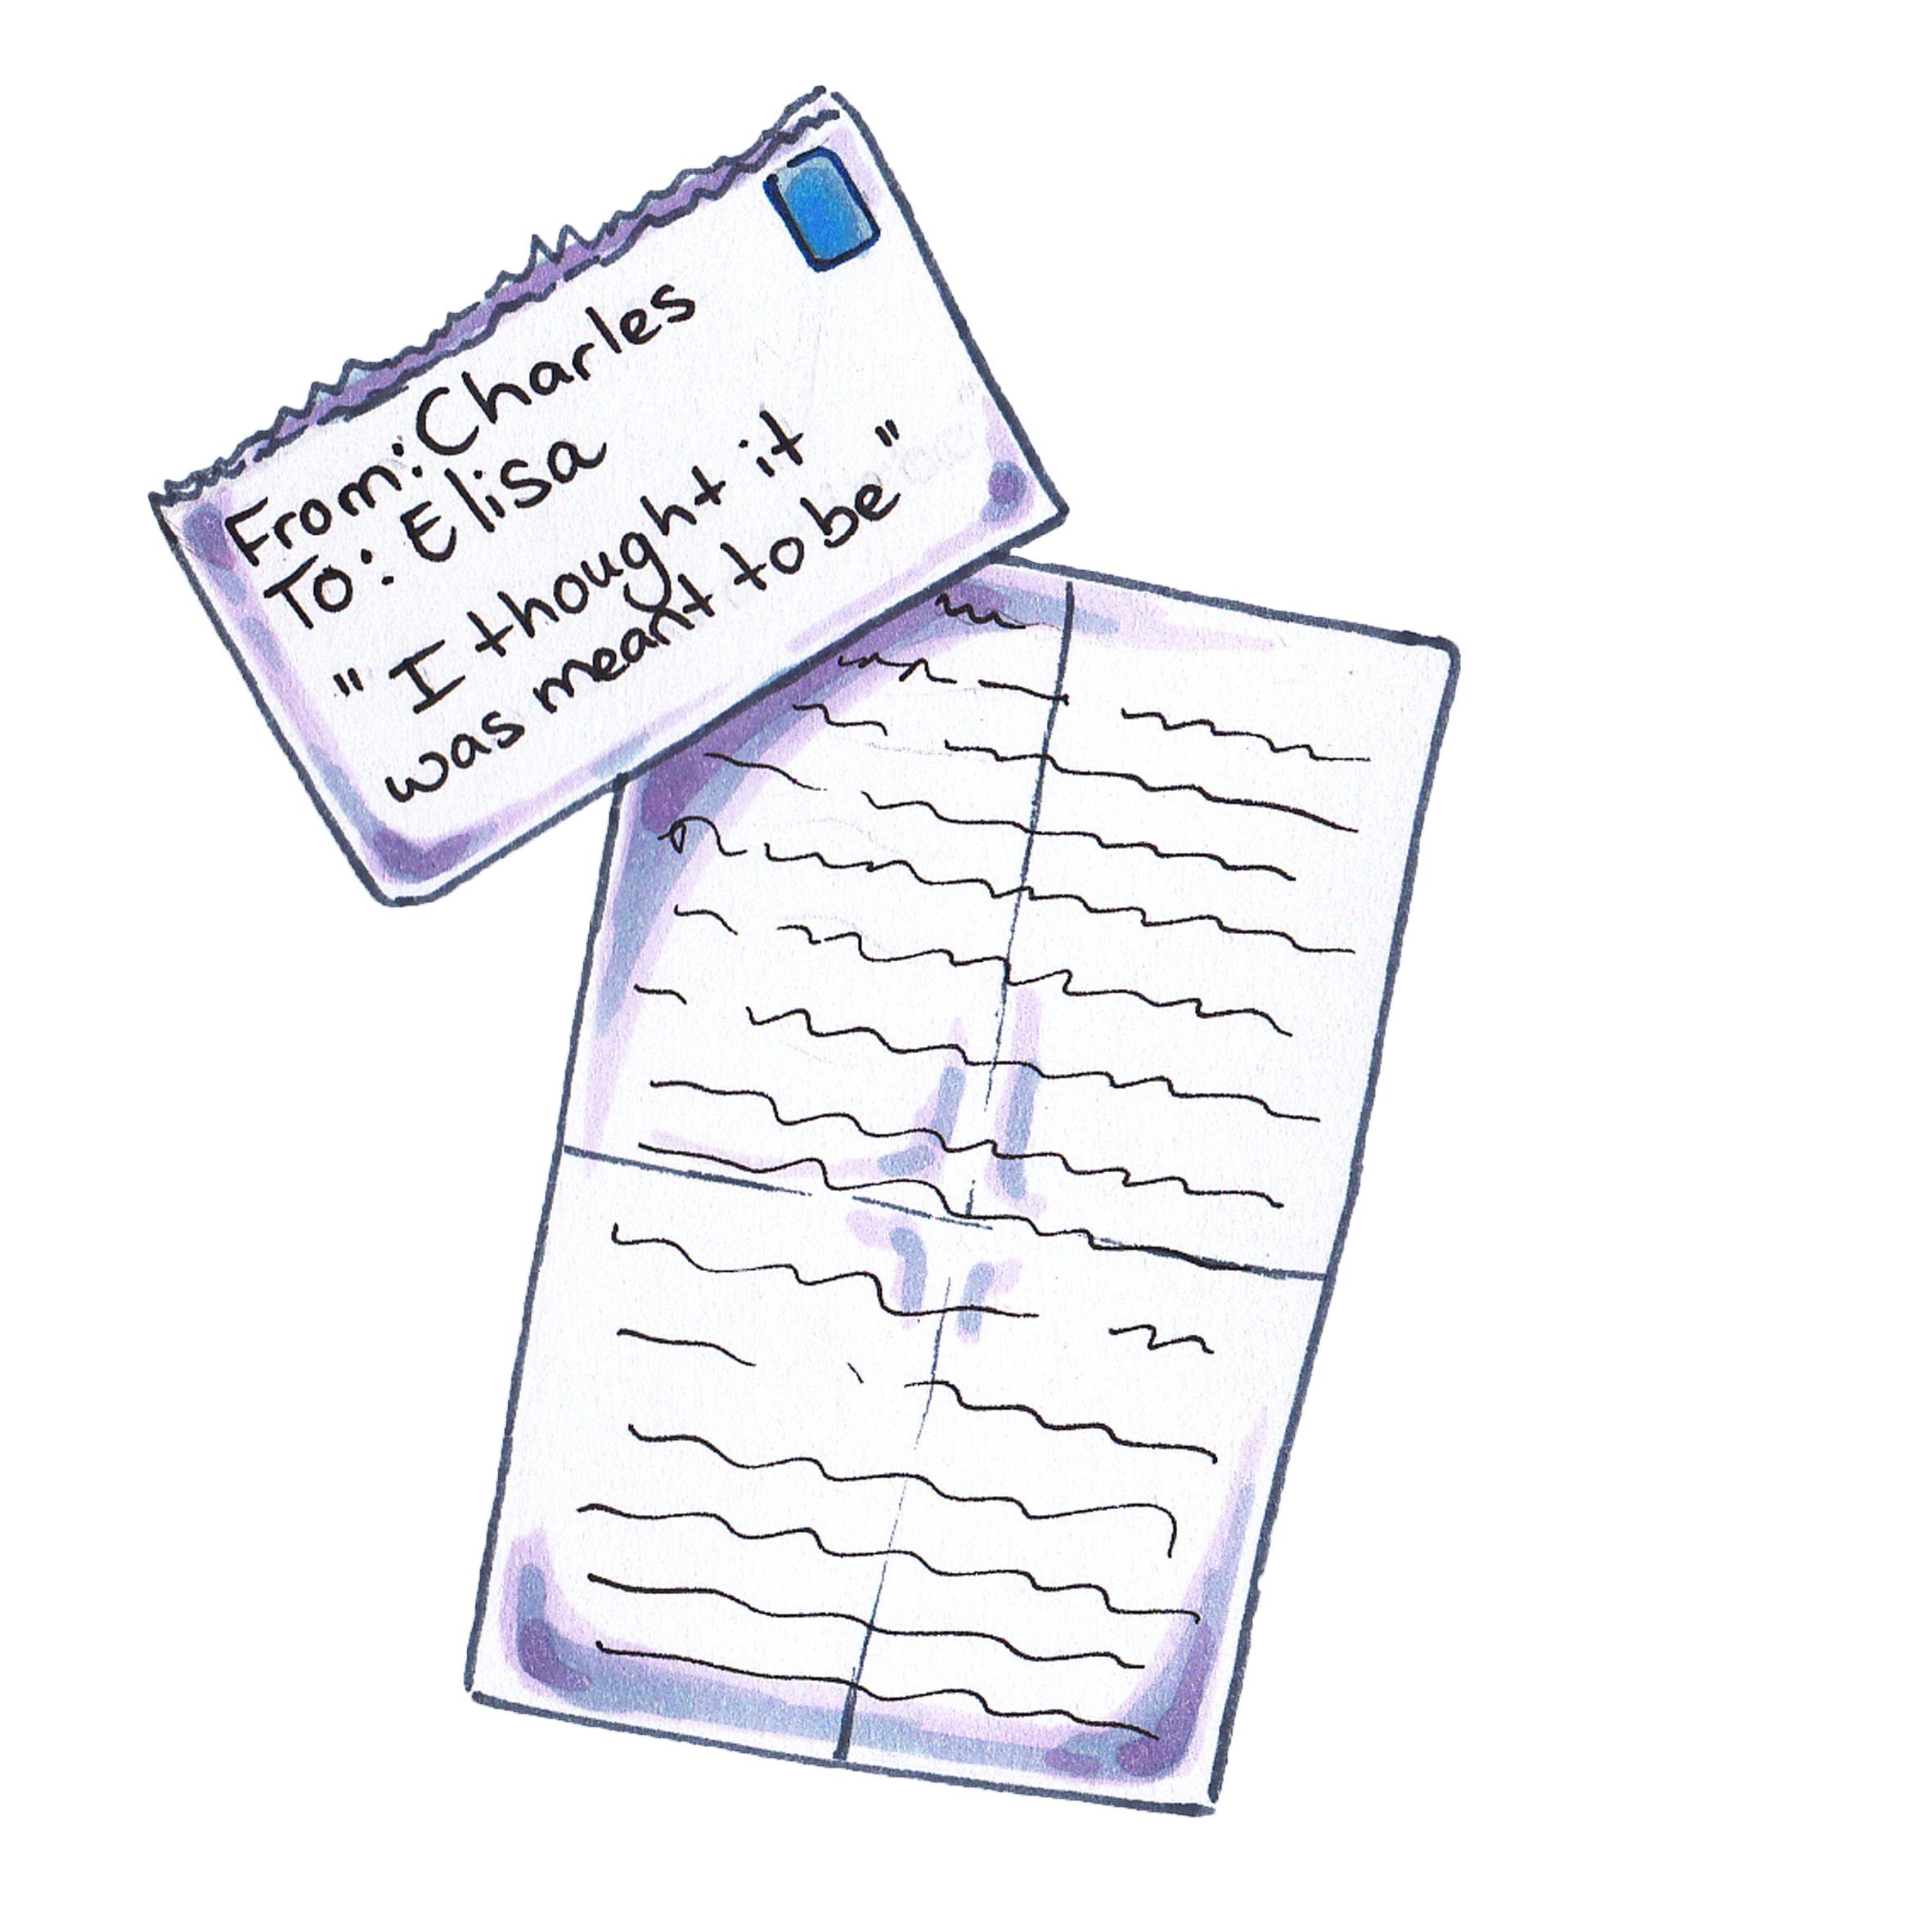 From: Charles
To: Elisa
"I thought it
was meant to be"